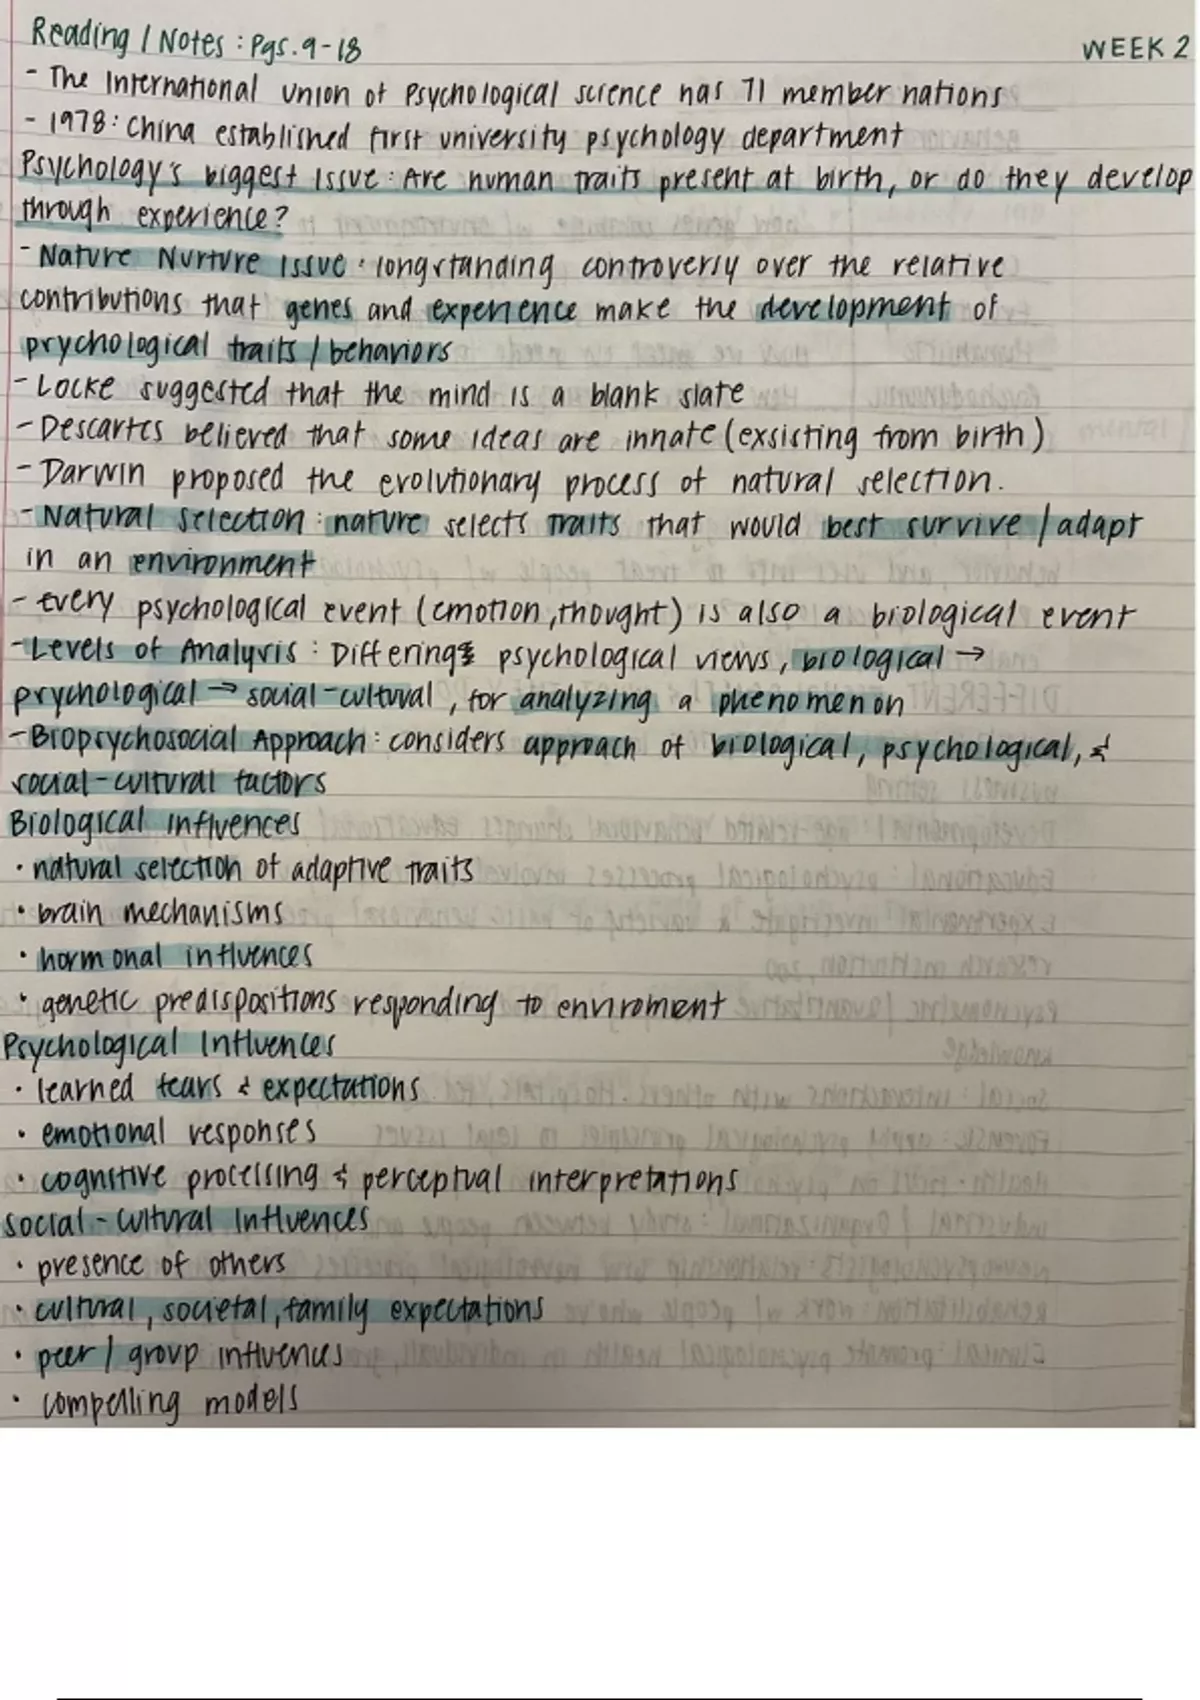 Reading / Notes : Pgs. 9-18 WEEK 2
- The International Union of Psychological science has 71 member nations
- 1978: China established first university psychology department
Psychology's biggest Issue: Are human traits present at birth, or do they develop
through experience?
- Nature Nurture Issue: longstanding controversy over the relative
contributions that genes and experience make the development of
psychological traits / behaviors
- Locke suggested that the mind is a blank slate
- Descartes believed that some ideas are innate (exsisting from birth)
- Darwin proposed the evolutionary process of natural selection.
- Natural selection: nature selects traits that would best survive / adapt
in an environment
- Every psychological event (emotion, thought) is also a biological event
- Levels of Analysis: Differing psychological views, biological →
psychological → social-cultural, for analyzing a phenomenon
- Biopsychosocial Approach: considers approach of biological, psychological, &
social-cultural factors
Biological Influences
• natural selection of adaptive traits
• brain mechanisms
• hormonal influences
• genetic predispositions responding to enviroment
Psychological Influences
• learned fears & expectations
• emotional responses
• cognitive processing & perceptual interpretations
Social-Cultural Influences
• presence of others
• cultural, societal, family expectations
• peer / group influences
• compelling models